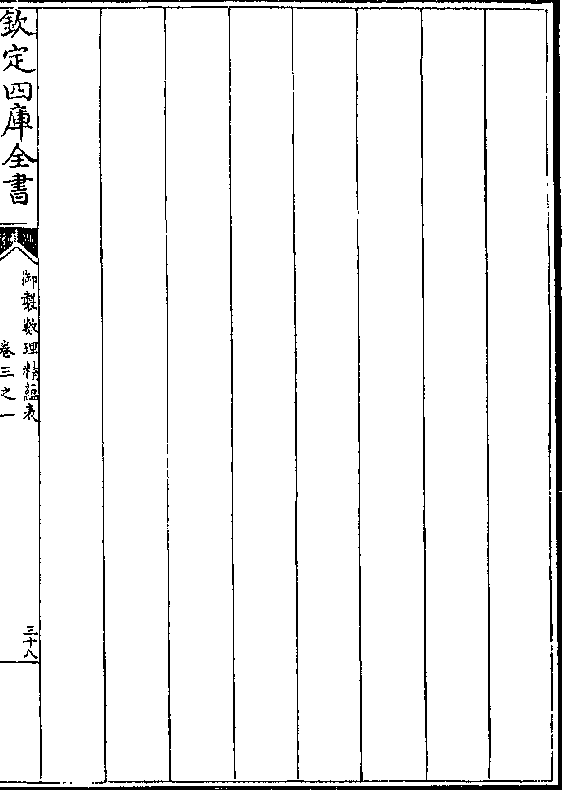 欽定四庫全書
御製數理精蘊表
卷三之一
三十八